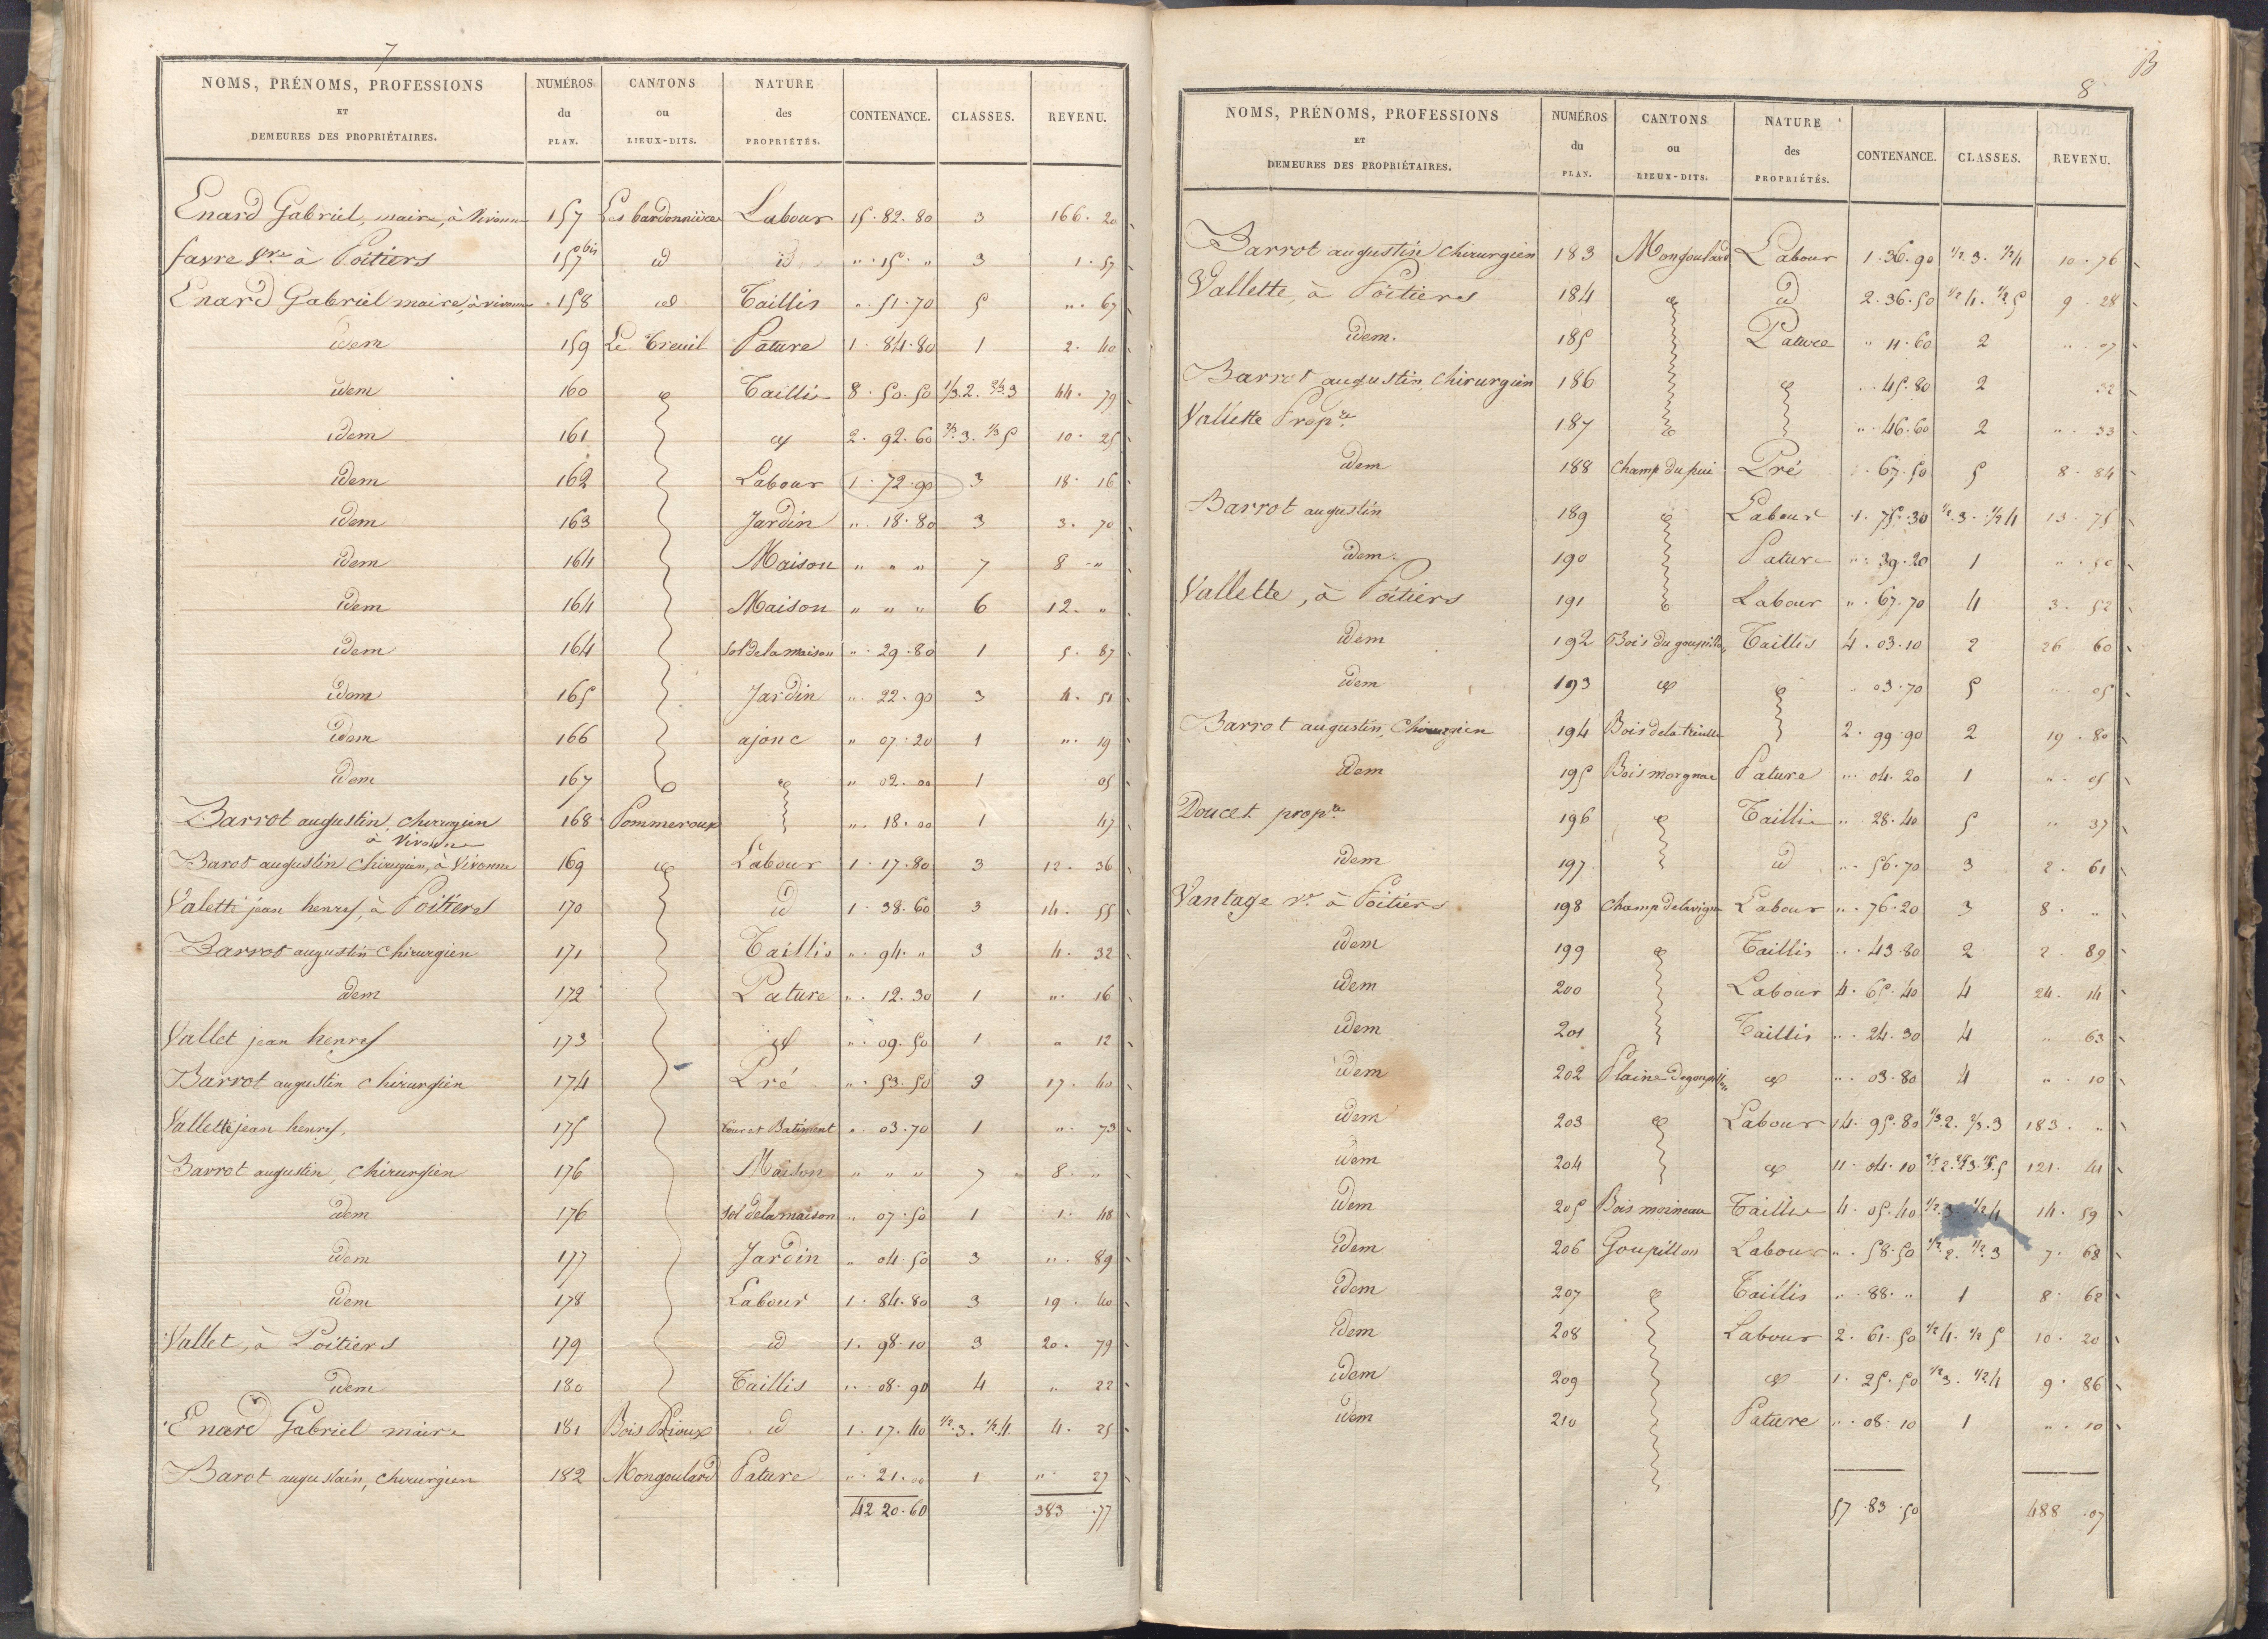 7
NOMS, PRÉNOMS, PROFESSIONS ET DEMEURES DES PROPRIÉTAIRES. NUMÉROS du PLAN. CANTONS ou LIEUX-DITS. NATURE des PROPRIÉTÉS. CONTENANCE. CLASSES. REVENU.
Enard Gabriel, maire, à Vivonne 157 Les bardonnières Labour 15. 82. 80 3 166. 20
favre Vve à Poitiers 157 bis id id " 15. " 3 1. 57
Enard Gabriel maire, à vivonne 158 id Taillis " 51. 70 5 " 67
idem 159 Le Treuil Pature 1. 84. 80 1 2. 40
idem 160 id Taillis 8. 50. 50 1/3. 2. 2/3. 3 44. 79
idem 161 id 2. 92. 60 2/3. 3. 1/3 5 10. 25
idem 162 Labour 1. 72. 90 3 18. 16
idem 163 Jardin " 18. 80 3 3. 70
idem 164 Maison " " " 7 8 "
idem 164 Maison " " " 6 12. "
idem 164 Sol de la maison " 29. 80 1 5. 87
idem 165 Jardin " 22. 90 3 4. 51
idem 166 ajonc " 07. 20 1 " 19
idem 167 id " 02. 00 1 05
Barrot augustin, chirurgien à Vivonne 168 Pommeroux " 18. 00 1 47
Barot augustin chirurgien, à Vivonne 169 id Labour 1. 17. 80 3 12. 36
Valette jean henry, à Poitiers 170 id 1. 38. 60 3 14. 55
Barrot augustin chirurgien 171 Taillis " 94. " 3 4. 32
idem 172 Pature " 12. 30 1 " 16
Vallet jean henry 173 id " 09. 50 1 " 12
Barrot augustin chirurgien 174 Pré " 53. 50 3 17. 40
Vallette jean henry, 175 Cour et Batiment " 03. 70 1 " 73
Barrot augustin, chirurgien 176 Maison " " " 7 8. "
idem 176 Sol de la maison " 07. 50 1 1. 48
idem 177 Jardin " 04. 50 3 " 89
idem 178 Labour 1. 84. 80 3 19. 40
Vallet, à Poitiers 179 id 1. 98. 10 3 20. 79
idem 180 Taillis " 08. 90 4 " 22
Enard Gabriel maire 181 Bois Prioux id 1. 17. 40 1/2. 3. 1/2. 4. 4. 25
Barot augustain, chirurgien 182 Mongoulard Pature " 21. 00 1 " 27
42 20. 60 383. 77
8
NOMS, PRÉNOMS, PROFESSIONS ET DEMEURES DES PROPRIÉTAIRES. NUMÉROS du PLAN. CANTONS ou LIEUX-DITS. NATURE des PROPRIÉTÉS. CONTENANCE. CLASSES. REVENU.
Barrot augustin chirurgien 183 Mongoulard Labour 1. 36. 90 1/2. 3. 1/2 4 10. 76
Vallette, à Poitiers 184 id id 2. 36. 50 1/2 4. 1/2 5 9. 28
idem. 185 Pature " 11. 60 2 " 07
Barrot augustin, chirurgien 186 id " 45. 80 2 32
Vallette Propre 187 " 46. 60 2 " 33
idem 188 Champ du puie Pré 67. 50 5 8. 84
Barrot augustin 189 id Labour 1. 75. 30 1/2. 3. 1/2 4 13. 75
idem. 190 Pature " 39. 20 1 " 50
Vallette, à Poitiers 191 Labour " 67. 70 4 3. 52
idem 192 Bois du goupillon Taillis 4. 03. 10 2 26 60
idem 193 id id " 03. 70 5 " 05
Barrot augustin, Chirurgien 194 Bois de la treille 2. 99. 90 2 19. 80
idem 195 Bois morgnac Pature " 04. 20 1 " 05
Doucet propre 196 id Taillis " 28. 40 5 " 37
idem 197 id " 56. 70 3 2. 61
Vantage Ve à Poitiers 198 Champ de la vigne Labour " 76. 20 3 8. "
idem 199 id Taillis " 43. 80 2 2 89
idem 200 Labour 4. 65. 40 4 24. 14
idem 201 Taillis " 24. 30 4 " 63
idem 202 Plaine de goupillon id " 03. 80 4 " 10
idem 203 id Labour 14. 95. 80 1/3. 2. 2/3. 3 183. "
idem 204 id 11. 04. 10 121. 41
idem 205 Bois moineau Taillis 4. 05. 40 1/2. 3 1/2 4 14. 59
idem 206 Goupillon Labour " 58. 50 1/2. 2. 1/2. 3 7. 68
idem 207 id Taillis " 88. " 1 8. 62
idem 208 Labour 2. 61. 50 1/2 4. 1/2 5 10. 20
idem 209 id 1. 25. 50 1/2 3. 1/2. 4 9. 86
idem 210 Pature " 08. 10 1 " 10
57. 83. 50 488. 07